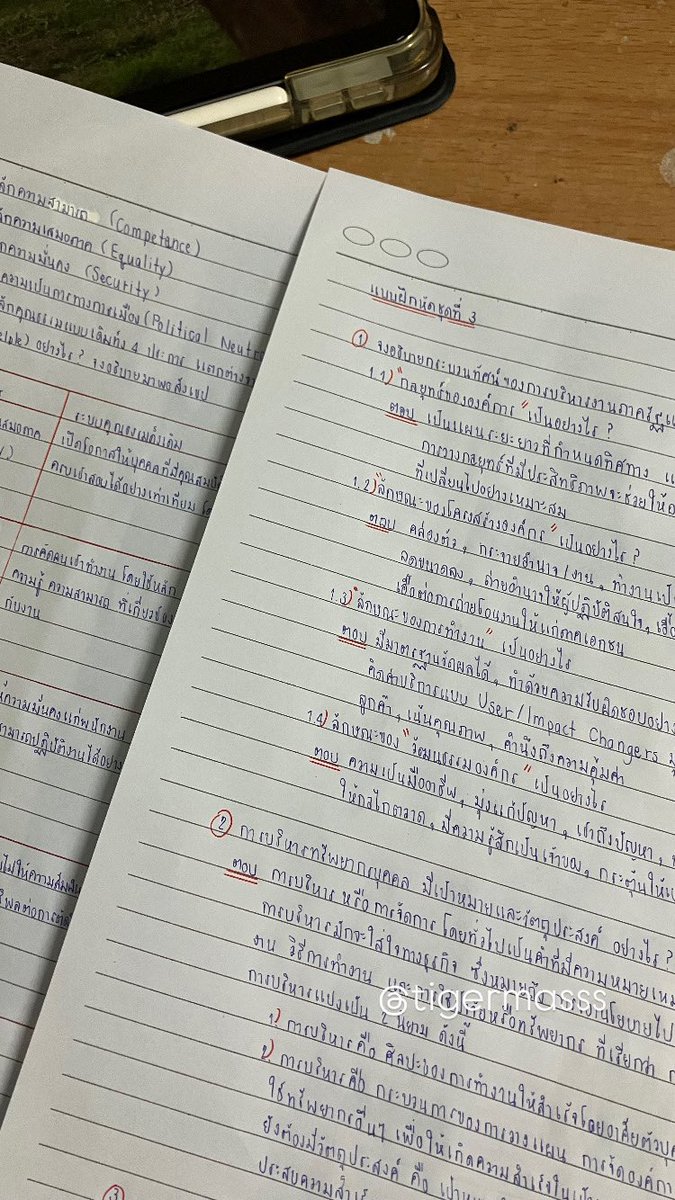 ความสามารถ (Competance)
ความเสมอภาค (Equality)
ความมั่นคง (Security)
ความเป็นกลางทางการเมือง (Political Neutr
คุณธรรมแบบเดิมทั้ง 4 ประการ แตกต่างจาก
อย่างไร? จงอธิบายมาพอสังเขป
ระบบคุณธรรมดั้งเดิม
เสมอภาค
เปิดโอกาสให้บุคคลที่มีคุณสมบัติ
ครบเข้าสอบได้อย่างเท่าเทียม
การคัดคนเข้าทำงาน โดยใช้หลัก
ความรู้ ความสามารถ ที่เกี่ยวข้อง
กับงาน
ความมั่นคงแก่พนักงาน
สามารถปฏิบัติงานได้อย่าง
แบบฝึกหัดชุดที่ 3
1 จงอธิบายกระบวนทัศน์ของการบริหารงานภาครัฐ
1.1) "กลยุทธ์ขององค์การ" เป็นอย่างไร?
ตอบ เป็นแผนระยะยาวที่กำหนดทิศทาง
การวางกลยุทธ์ที่มีประสิทธิภาพจะช่วยให้
ที่เปลี่ยนไปอย่างเหมาะสม
1.2) "ลักษณะของโครงสร้างองค์กร" เป็นอย่างไร?
ตอบ คล่องตัว, กระจายอำนาจ/งาน, ทำงานเป็
ลดขนาดลง, ถ่ายอำนาจให้ผู้ปฏิบัติสนใจ,
เอื้อต่อการถ่ายโอนงานให้แก่ภาคเอกชน
1.3) "ลักษณะของการทำงาน" เป็นอย่างไร
ตอบ มีมาตรฐานวัดผลได้, ทำด้วยความรับผิดชอบอย่าง
คิดค่าบริการแบบ User/Impact Changers
ลูกค้า, เน้นคุณภาพ, คำนึงถึงความคุ้มค่า
1.4) ลักษณะของ "วัฒนธรรมองค์กร" เป็นอย่างไร
ตอบ ความเป็นมืออาชีพ, มุ่งแก้ปัญหา, เข้าถึงปัญหา,
ใช้กลไกตลาด, มีความรู้สึกเป็นเจ้าของ, กระตุ้นให้
2 การบริหารทรัพยากรบุคคล มีเป้าหมายและวัตถุประสงค์ อย่างไร?
ตอบ การบริหาร หรือ การจัดการ โดยทั่วไปเป็นคำที่มีความหมายเหม
การบริหารมักจะใส่ใจทางธุรกิจ ซึ่งหมายถึง นโยบายไป
งาน วิธีการทำงาน หรือทรัพยากร ที่เรียกว่า
การบริหารแบ่งเป็น 2 นิยาม ดังนี้
1) การบริหารคือ ศิลปะของการทำงานให้สำเร็จโดยอาศัยตัวบุค
2) การบริหารคือ กระบวนการของการวางแผน การจัดองค์กา
ใช้ทรัพยากรอื่นๆ เพื่อให้เกิดความสำเร็จใน
ยังต้องมีวัตถุประสงค์ คือ
ประสบความสำเร็
3
@tigermasss